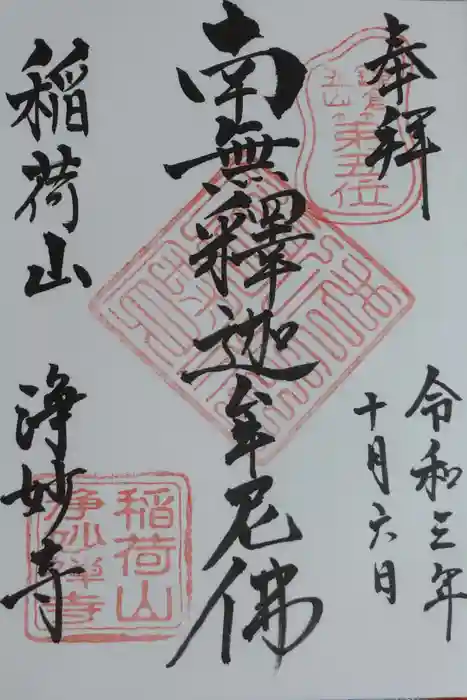 奉拝
鎌倉
五山
第五位
令和三年
十月六日
南無釋迦牟尼佛
稲荷山
浄妙寺
稲荷山
浄妙禅寺